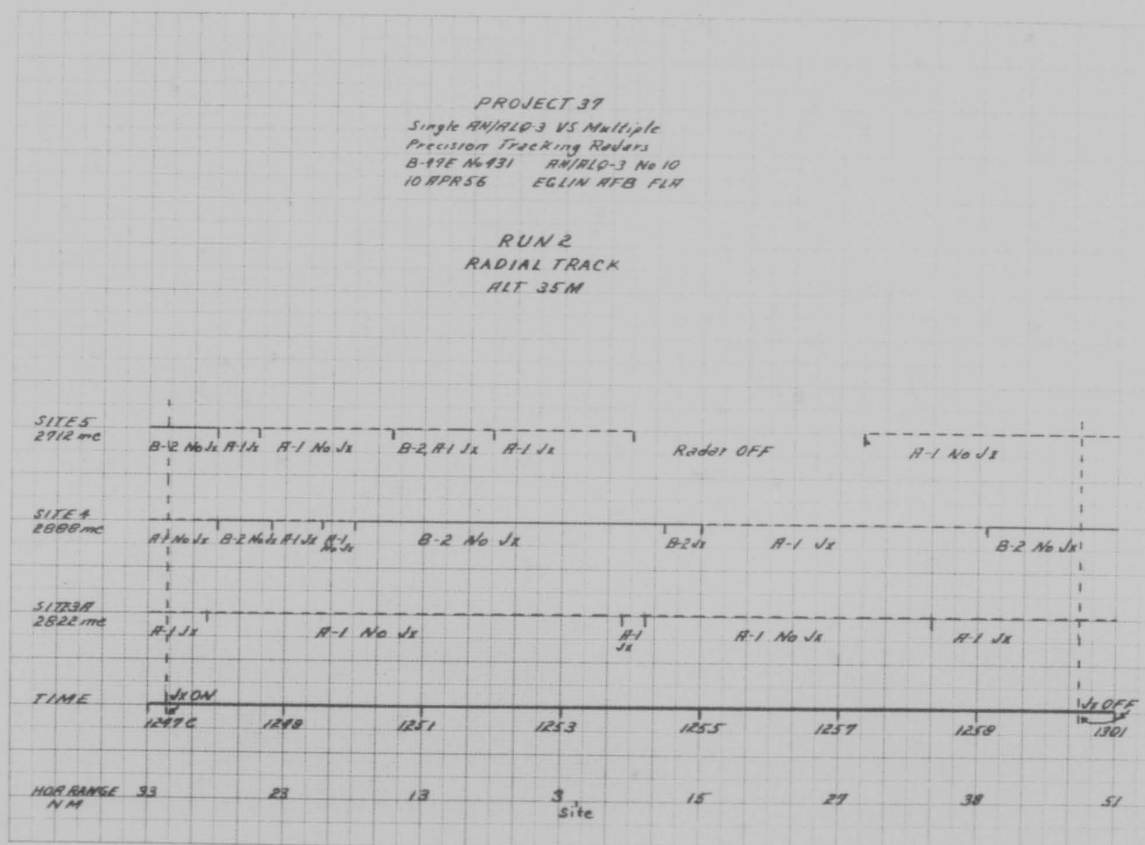 PROJECT 37
Single AN/ALQ-3 VS Multiple
Precision Tracking Radars
B-47E No 431 AN/ALQ-3 No 10
10 APR 56 EGLIN AFB FLA
RUN 2
RADIAL TRACK
ALT 35M
SITE 5
2712 mc
B-2 No Jx A-1 Jx A-1 No Jx B-2, A-1 Jx A-1 Jx Radar OFF A-1 No Jx
SITE 4
2888 mc
A-1 No Jx B-2 No Jx A-1 Jx A-1 No Jx B-2 No Jx B-2 Jx A-1 Jx B-2 No Jx
SITE 3A
2822 mc
A-1 Jx A-1 No Jx A-1 Jx A-1 No Jx A-1 Jx
Jx ON Jx OFF
TIME 1247 C 1249 1251 1253 1255 1257 1259 1301
HOR RANGE 33 23 13 3 15 27 38 51
NM
site